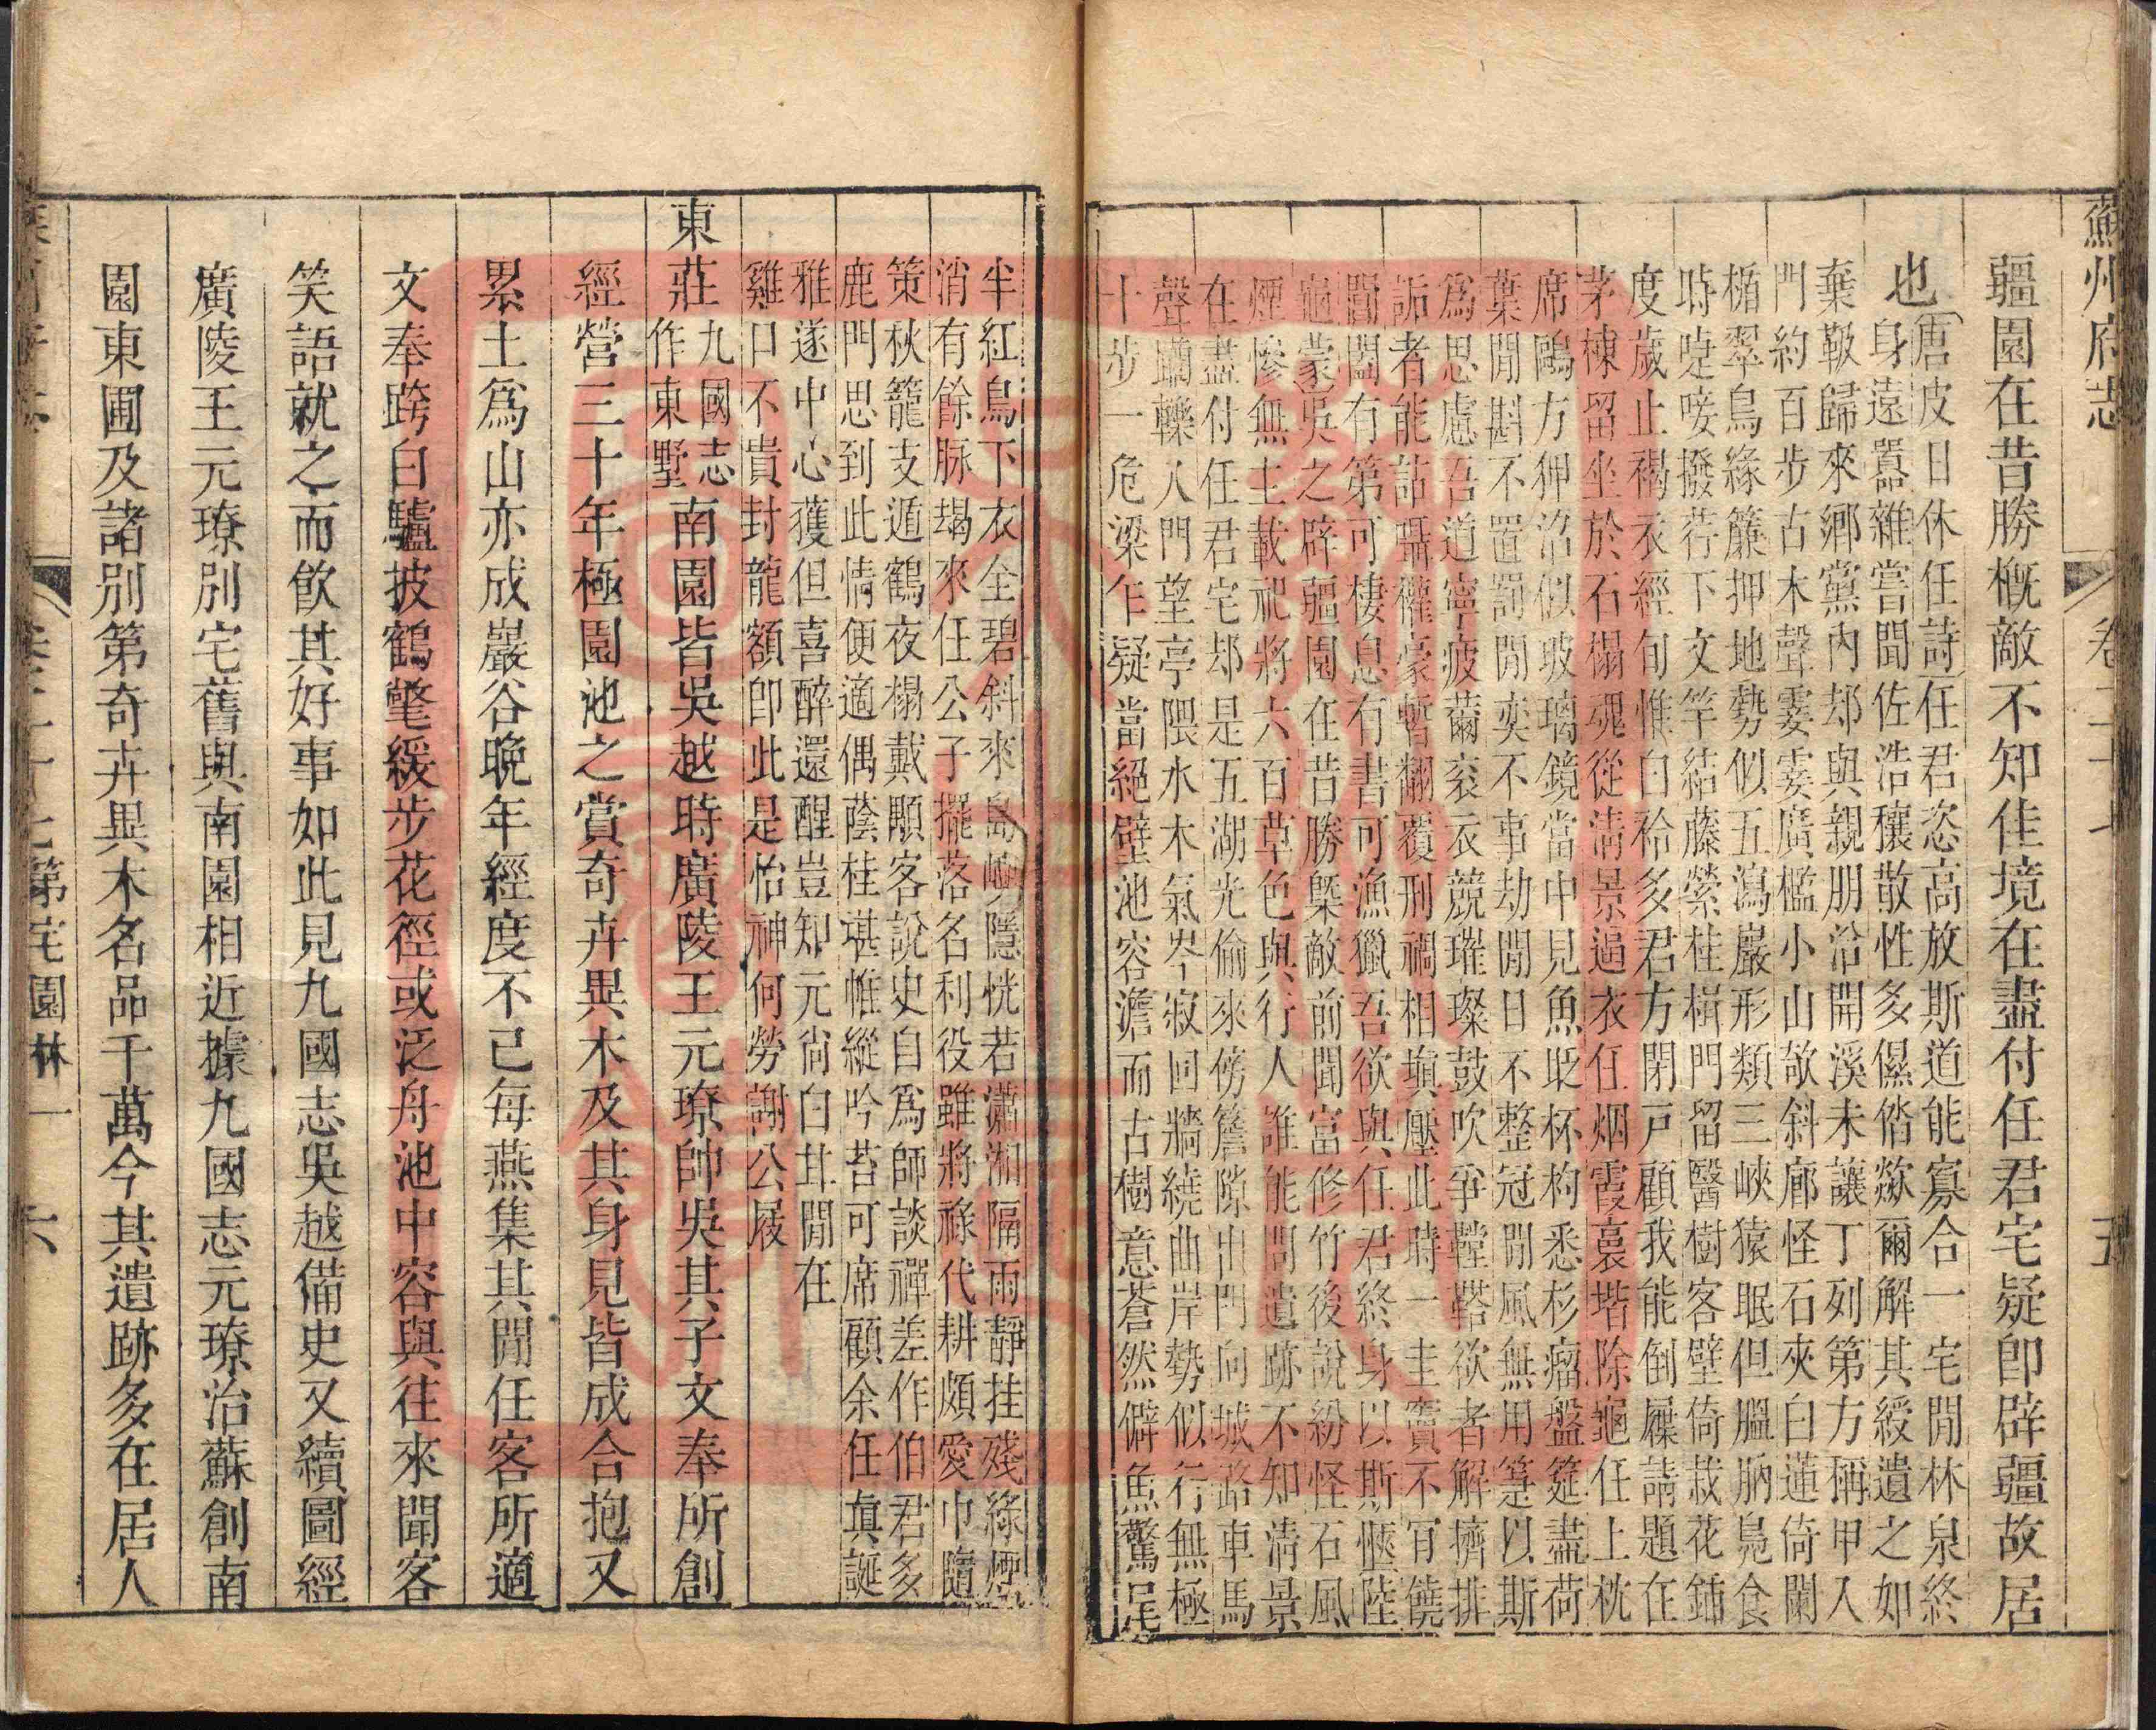 蘇州府志 卷二十七 五
疆園在昔勝概敵不知佳境在盡付任君宅疑即辟疆故居
也
唐皮日休任詩任君恣高放斯道能寡合一宅閒林泉終
身遠囂雜嘗聞佐浩穰散性多儑偺歘爾解其綬遺之如
棄靸歸來鄉黨內却與親朋洽開溪未讓丁列第方稱甲入
門約百步古木聲霎霎廣檻小山欹斜廊怪石夾白蓮倚闌
楯翠鳥緣簾押地勢似五瀉巖形類三峽猿眠但膃肭鳧食
時啑唼撥荇下文竿結藤縈桂楫門留醫樹客壁倚栽花鍤
度歲止褐衣經旬惟白袷多君方閉戶顧我能倒屣請題在
茅棟留坐於石榻魂從清景逼衣任烟霞裛堦除龜任上枕
席鷗方狎沼似玻璃鏡當中見魚眨杯杓悉杉瘤盤筵盡荷
葉閒斟不置罰閒奕不事劫閒日不整冠閒風無用箑以斯
為思慮吾道寧疲薾衮衣競璀璨鼓吹爭鞺鞳欲者解擠排
詬者能詀讘權豪暫翻覆刑禍相塡壓此時一圭竇不肎饒
閶闔有第可棲息有書可漁獵吾欲與任君終身以斯愜陸
龜蒙吳之辟疆園在昔勝槩敵前聞富修竹後說紛怪石風
煙慘無主載祀將六百草色與行人誰能問遺跡不知清景
在盡付任君宅却是五湖光偷來傍簷隙出門向城路車馬
聲轔轢入門望亭隈水木氣岑寂回牆繞曲岸勢似行無極
十步一危梁乍疑當絕壁池容澹而古樹意蒼然僻魚驚尾
半紅鳥下衣全碧斜來島嶼隱恍若瀟湘隔雨靜挂殘綠煙
消有餘脉朅來任公子擺落名利役雖將祿代耕頗愛巾隨
策秋籠支遁鶴夜榻戴顒客說史自為師談禪差作伯君多
鹿門思到此情便適偶蔭桂堪帷縱吟苔可席顧余任眞誕
雅遂中心獲但喜醉還醒豈知元尚白甘閒在
雞口不貴封龍額即此是怡神何勞謝公屐
東莊
九國志
作東墅
南園皆吳越時廣陵王元璙帥吳其子文奉所創
經營三十年極園池之賞奇卉異木及其身見皆成合抱又
累土爲山亦成巖谷晚年經度不已每燕集其間任客所適
文奉跨白驢披鶴氅緩步花徑或泛舟池中容與往來聞客
笑語就之而飲其好事如此見九國志吳越備史又續圖經
廣陵王元璙別宅舊與南園相近據九國志元璙治蘇創南
園東圃及諸別第奇卉異木名品千萬今其遺跡多在居人
第宅園林一 六